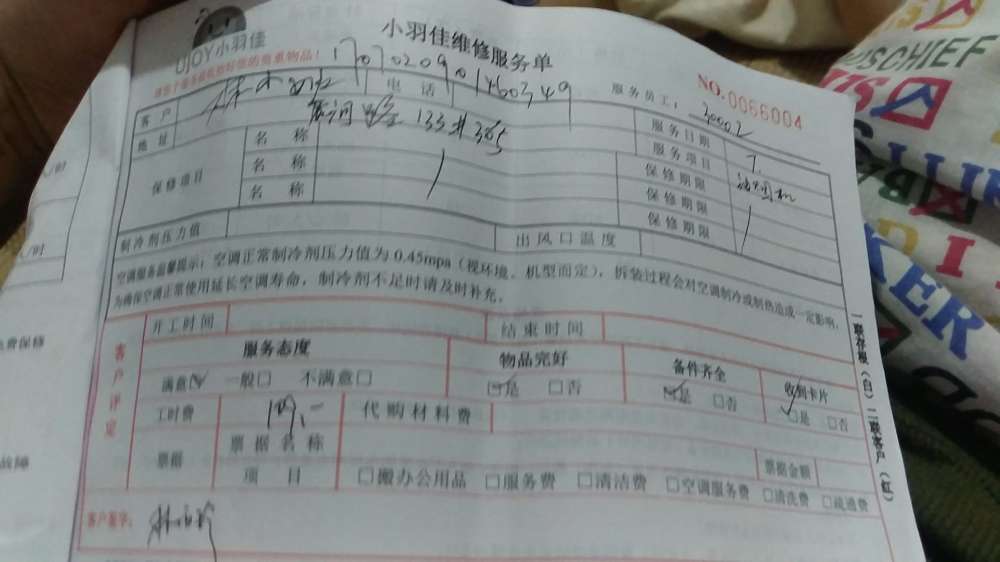 UJOY小羽佳
小羽佳维修服务单
NO.0066004
服务员工：30502
客户 电话
地址 133#305 服务日期 7.
保修项目 名称 服务项目 油烟机
名称 保修期限
名称 保修期限
保修期限
制冷剂压力值 出风口温度
空调服务温馨提示：空调正常制冷剂压力值为0.45mpa（视环境、机型而定），拆装过程会对空调制冷或制热造成一定影响，
为确保空调正常使用延长空调寿命，制冷剂不足时请及时补充。
开工时间 结束时间
客户评定 服务态度 物品完好 备件齐全 收到卡片
满意☑ 一般□ 不满意□ ☑是 □否 ☑是 □否 ☑是 □否
工时费 代购材料费
票据 票据名称 票据金额
项目 □搬办公用品 □服务费 □清洁费 □空调服务费 □清洗费 □疏通费
客户签字：
一联存根（白）二联客户（红）
MISCHIEF